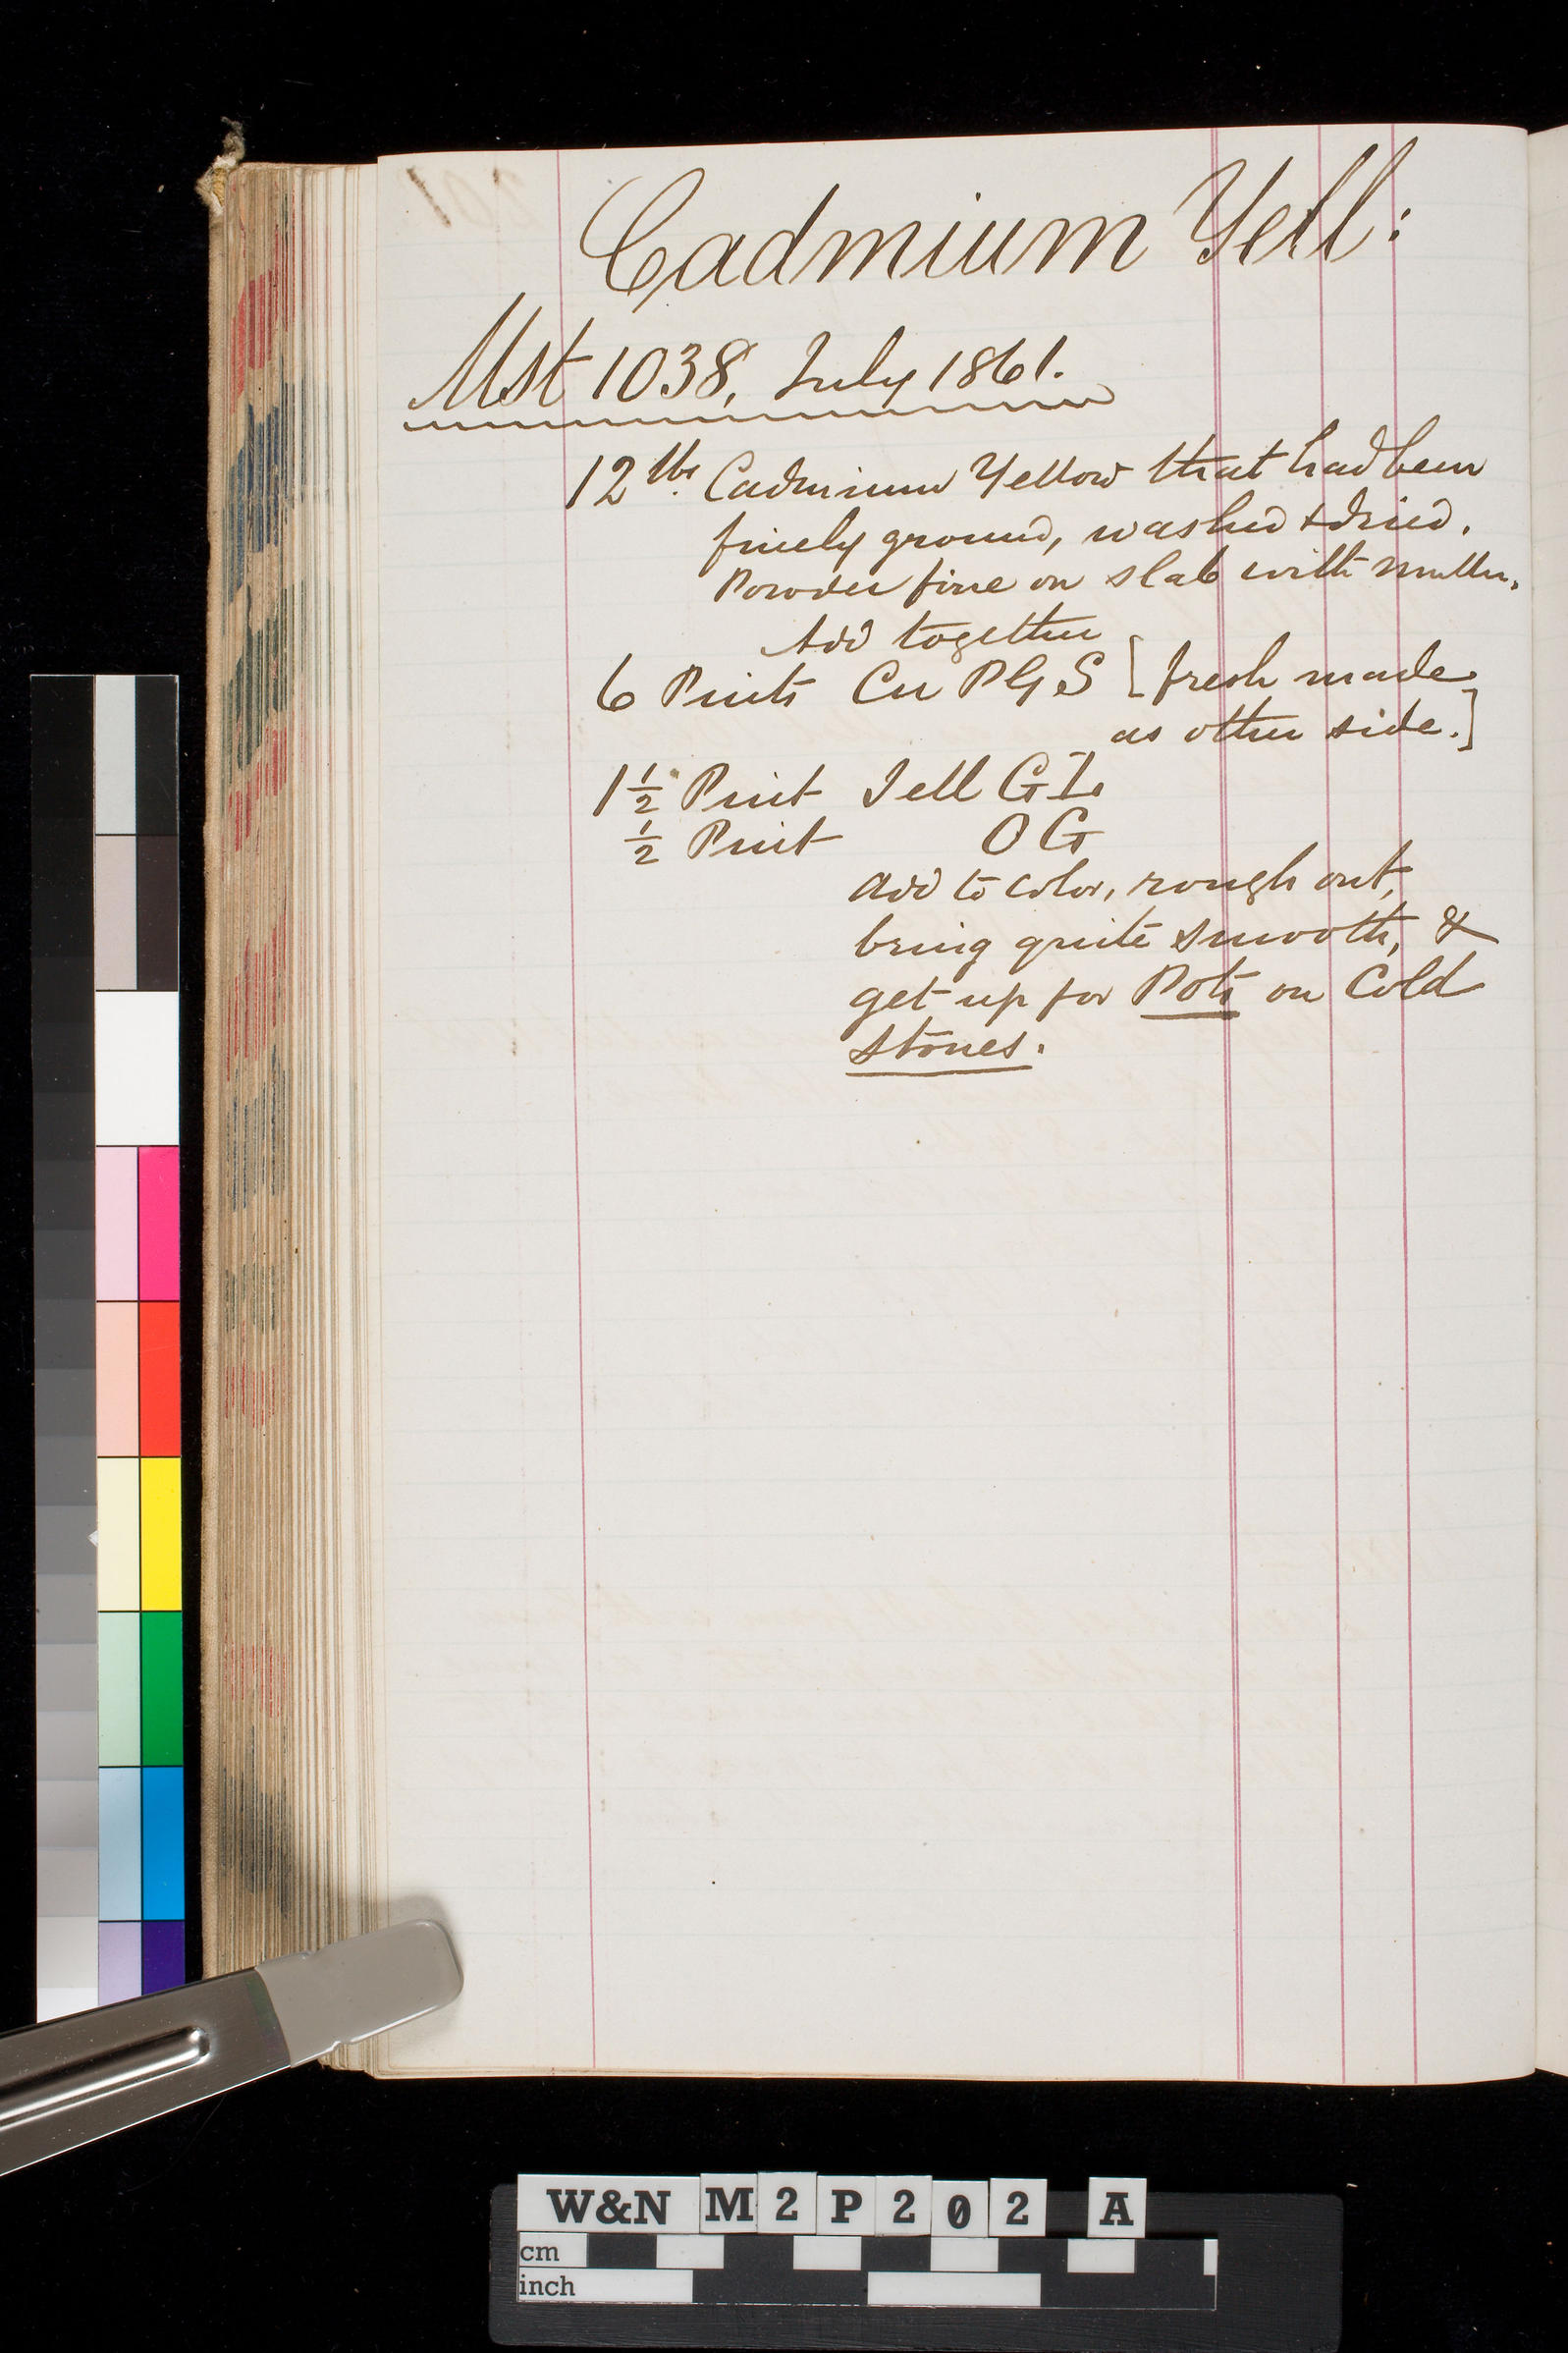 Cadmium Yell:
Mst 1038, July 1861.
12 lbs. Cadmium Yellow that had been
finely ground, washed & dried.
Powder fine on slab with muller.
Add together
6 Pints Cu P G S [fresh made
as other side.]
1 1/2 Pint Jell G I.
1/2 Pint O G
add to color, rough out,
bring quite smooth, &
get up for Pots on Cold
Stones.
W&N M2P202 A
cm
inch